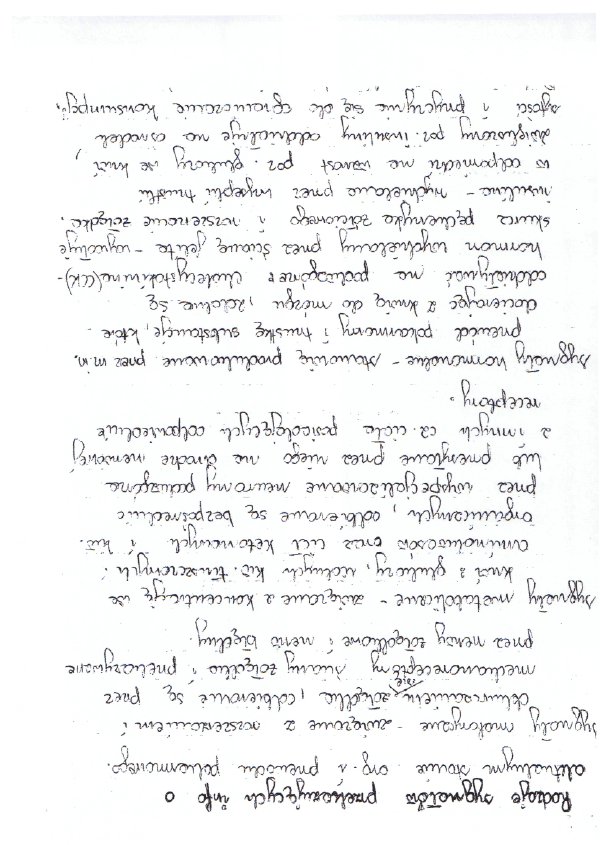 Rodzaje sygnałów przekazujących info o
aktualnym stanie org. i przewodu pokarmowego.
sygnały motoryczne - związane z rozszerzaniem i
obkurczaniem się żołądka, odbieranie są przez
mechanoreceptory ściany żołądka i przekazywane
przez nerwy żołądkowe i nerw błędny.
sygnały metaboliczne - związane z koncentracją we
krwi : glukozy, wolnych kw. tłuszczowych,
aminokwasów oraz ciał ketonowych i kw.
organicznych, odbierane są bezpośrednio
przez wyspecjalizowane neurony podwzgórza
lub przesyłane przez niego na drodze nerwowej
z innych cz. ciała posiadających odpowiednie
receptory.
sygnały hormonalne - stanowią produkowane przez m.in.
przewód pokarmowy i trzustkę substancje, które
docierając z krwią do mózgu, zdolne są
oddziaływać na podwzgórze. Cholecystokinina (CCK) -
hormon wydzielany przez ścianę jelita - wywołuje
skurcz pęcherzyka żółciowego i rozszerzenie żołądka.
insulina - wydzielana przez wysepki trzustki
w odpowiedzi na wzrost poz. glukozy we krwi,
zwiększony poz. insuliny oddziałuje na ośrodek
sytości i przyczynia się do ograniczenia konsumpcji.